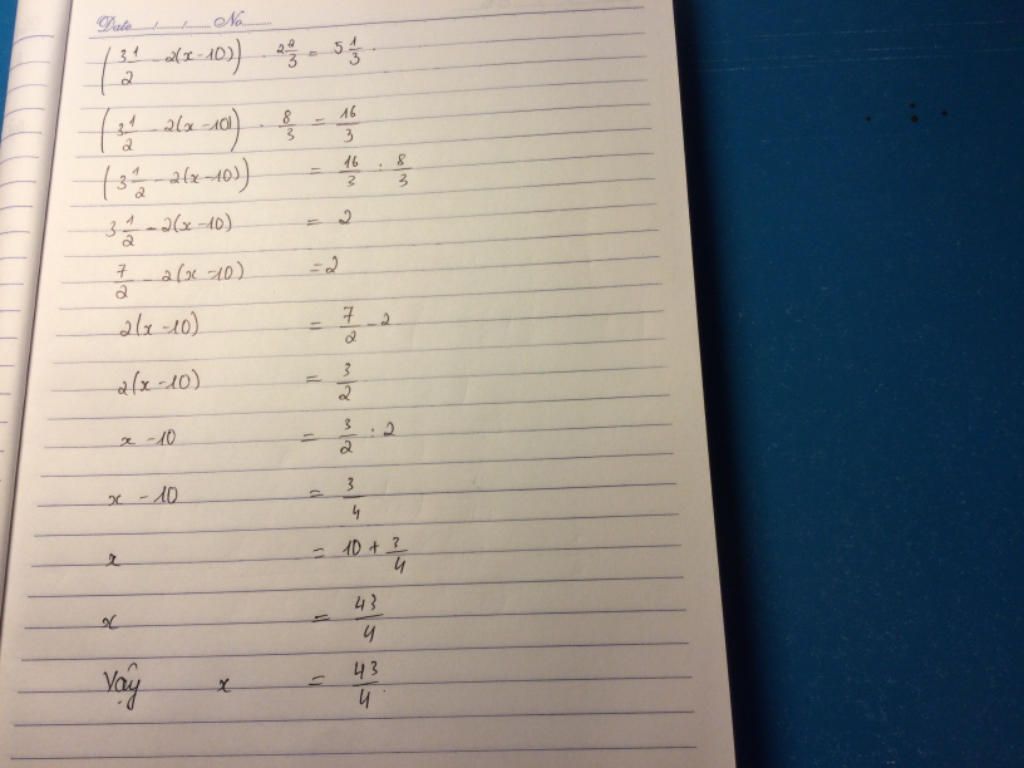 Date . . No.
(3 1/2 - 2(x-10)) . 2 2/3 = 5 1/3.
(3 1/2 - 2(x-10)) . 8/3 = 16/3
(3 1/2 - 2(x-10)) = 16/3 : 8/3
3 1/2 - 2(x-10) = 2
7/2 - 2(x-10) = 2
2(x-10) = 7/2 - 2
2(x-10) = 3/2
x - 10 = 3/2 : 2
x - 10 = 3/4
x = 10 + 3/4
x = 43/4
Vậy x = 43/4.